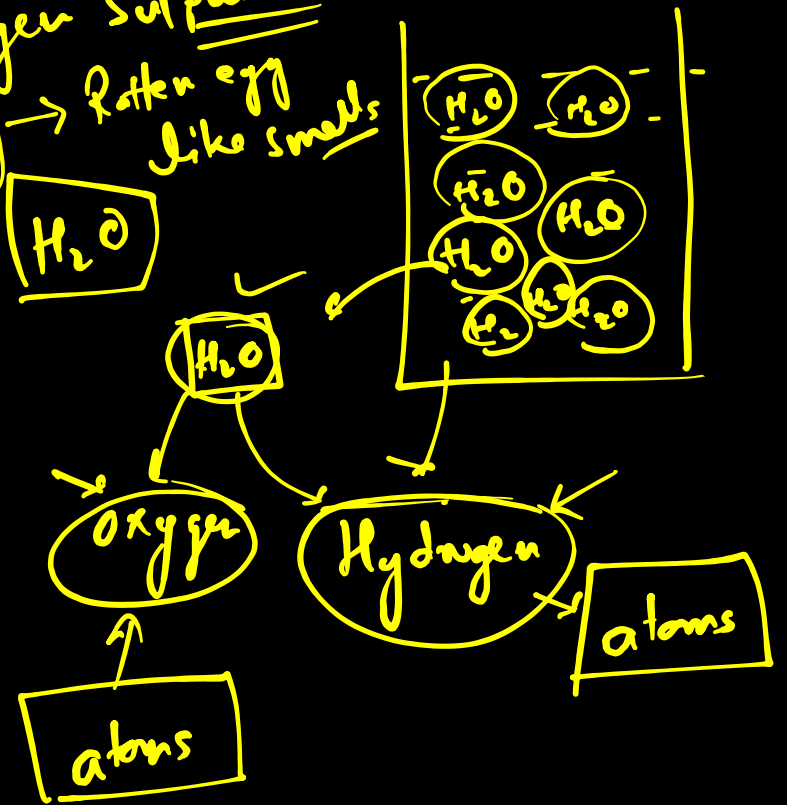 gen Sulp
→ Rotten egg
like smells
H₂O
H₂O H₂O
H₂O
H₂O
H₂O
H₂O H₂O
H₂
H₂O
oxygen Hydrogen
atoms
atoms